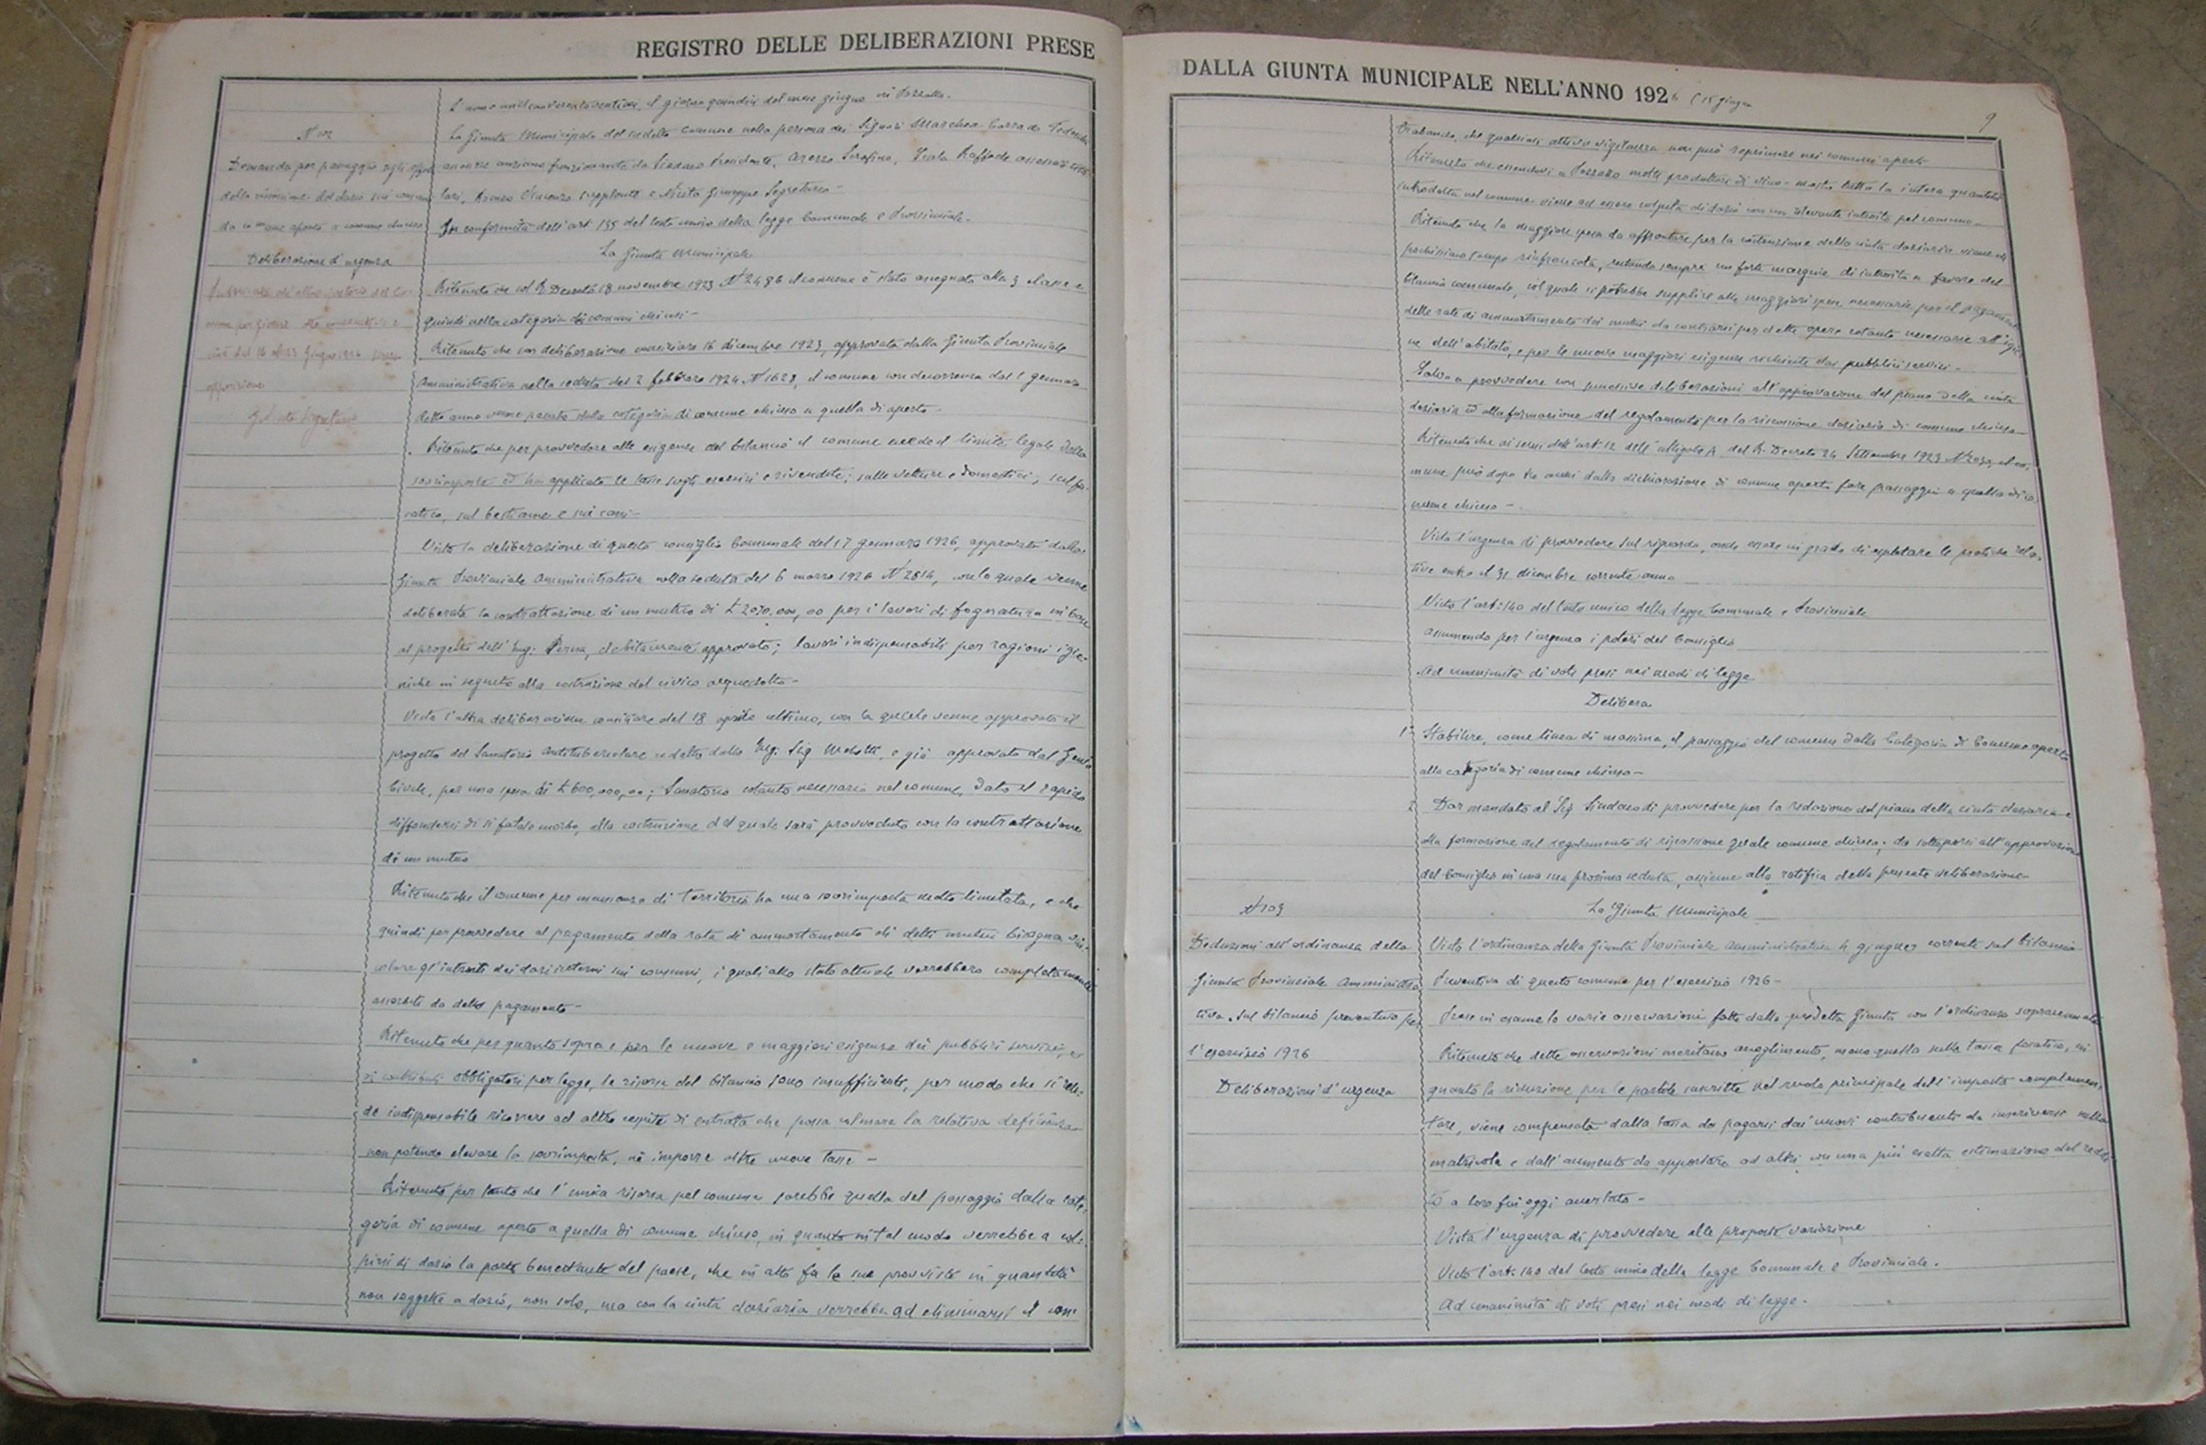 REGISTRO DELLE DELIBERAZIONI PRESE
L'anno millenovecentoventisei, il giorno quindici del mese giugno in Pozzallo.
La Giunta Municipale del suddetto Comune nella persona dei Signori
assessore anziano funzionante da Sindaco Presidente, Azezzo Serafino, Scala Raffaele assessori
lari, Vincenzo supplente e Nicita Giuseppe Segretario -
In conformità dell'art 135 del testo unico della legge Comunale e Provinciale -
La Giunta Municipale
N 102
Domanda per passaggio
della riscossione del dazio sui consumi
da comune aperto a comune chiuso
Deliberazione d'urgenza
Segretario
Ritenuto che col R. Decreto 18 novembre 1923 N 2486 il comune è stato assegnato alla 3 classe e
quindi nella categoria di comuni chiusi -
Ritenuto che con deliberazione consiliare 16 dicembre 1923, approvata dalla Giunta Provinciale
Amministrativa nella seduta del 2 febbraio 1924, N 1628, il comune con decorrenza dal 1 gennaio
detto anno venne passato dalla categoria di comune chiuso a quella di aperto -
Ritenuto che per provvedere alle esigenze del bilancio il comune eccede il limite legale della
sovrimposta ed ha applicato le tasse sugli esercizi e rivendite; sulle vetture e domestici; sul fo-
catico, sul bestiame e sui cani -
Vista la deliberazione di questo consiglio Comunale del 17 gennaio 1926, approvata dalla
Giunta Provinciale Amministrativa nella seduta del 6 marzo 1926 N 2814, con la quale venne
deliberata la contrattazione di un mutuo di £ 2070.000,00 per i lavori di fognatura in base
al progetto dell'Ing. Perna, debitamente approvato; lavori indispensabili per ragioni igie-
niche in seguito alla costruzione del civico acquedotto -
Vista l'altra deliberazione consiliare del 18 aprile ultimo, con la quale venne approvato il
progetto del Sanatorio antitubercolare redatto dallo Ing. Sig e già approvato dal Genio
Civile, per una spesa di £ 600,000,00; Sanatorio cotanto necessario nel comune, dato il rapido
diffondersi di sì fatale morbo, alla costruzione del quale sarà provveduto con la contrattazione
di un mutuo
Ritenuto che il comune per mancanza di territorio ha una sovrimposta molto limitata, e che
quindi per provvedere al pagamento della rata di ammortamento di detti mutui bisogna vin-
colare gl'introiti dei dazi interni sui consumi, i quali allo stato attuale verrebbero completamente
assorbiti da detto pagamento -
Ritenuto che per quanto sopra e per le nuove e maggiori esigenze dei pubblici servizi, e
di contributi obbligatori per legge, le risorse del bilancio sono insufficienti, per modo che si ren-
de indispensabile ricorrere ad altro cespite di entrata che possa colmare la relativa deficienza
non potendo elevare la sovrimposta, nè imporre altre nuove tasse -
Ritenuto per tanto che l'unica risorsa pel comune sarebbe quella del passaggio dalla cate-
goria di comune aperto a quella di comune chiuso, in quanto in tal modo verrebbe a col-
pirsi di dazio la parte benestante del paese, che in atto fa le sue provviste in quantità
non soggette a dazio, non solo, ma con la cinta daziaria verrebbe ad eliminarsi il con-
DALLA GIUNTA MUNICIPALE NELL'ANNO 1926 (15 giugno
9
trabando, che qualsiasi attiva vigilanza non può reprimere nei comuni aperti
Ritenuto che essendovi a Pozzallo molti produttori di vino-mosto tutta la intera quantità
introdotta nel comune viene ad essere colpita di dazio con un rilevante introito pel comune -
Ritenuto che la maggiore spesa da affrontare per la costruzione della cinta daziaria viene in
pochissimo tempo rinfrancata, restando sempre un forte margine di introito a favore del
bilancio comunale, col quale si potrebbe supplire alle maggiori spese necessarie per il pagamento
delle rate di ammortamento dei mutui da contrarsi per dette opere cotanto necessarie all'igie-
ne dell'abitato, e per le nuove maggiori esigenze richieste dai pubblici servizi -
Salvo a provvedere con successive deliberazioni all'approvazione del piano della cinta
daziaria ed alla formazione del regolamento per la riscossione daziaria di comune chiuso -
Ritenuto che ai sensi dell'art. 12 dell'allegato A del R. Decreto 24 Settembre 1923 N 2030, il co-
mune può dopo tre anni dalla dichiarazione di comune aperto fare passaggio a quella di co-
mune chiuso -
Vista l'urgenza di provvedere sul riguardo, onde essere in grado di espletare le pratiche rela-
tive entro il 31 dicembre corrente anno
Visto l'art: 140 del testo unico della legge Comunale e Provinciale
Assumendo per l'urgenza i poteri del Consiglio
Ad unanimità di voti presi nei modi di legge
Delibera
1° Stabilire, come linea di massima, il passaggio del comune dalla Categoria di Comune aperto
alla categoria di comune chiuso -
2 Dar mandato al Sig. Sindaco di provvedere per la redazione del piano della cinta daziaria e
alla formazione del regolamento di riscossione quale comune chiuso; da sottoporsi all'approvazione
del Consiglio in una sua prossima seduta, assieme alla ratifica della presente deliberazione -
N 103
Deduzioni all'ordinanza della
Giunta Provinciale Amministra
tiva, sul bilancio preventivo per
l'esercizio 1926
Deliberazioni d'urgenza
La Giunta Municipale
Vista l'ordinanza della Giunta Provinciale Amministrativa 4 giugno corrente sul bilancio
Preventivo di questo comune per l'esercizio 1926 -
Prese in esame le varie osservazioni fatte dalla predetta Giunta con l'ordinanza sopracennata
Ritenuto che dette osservazioni meritano accoglimento, meno quella sulla tassa focatico, in
quanto la riduzione per le partite inscritte nel ruolo principale dell'imposta complemen-
tare, viene compensata dalla tassa da pagarsi dai nuovi contribuenti da inscriversi nella
matricola e dall'aumento da apportare ad altri con una più esatta estimazione del reddi-
to a loro fin oggi accertato -
Vista l'urgenza di provvedere alle proposte variazione
Visto l'art. 140 del testo unico della legge Comunale e Provinciale.
Ad unanimità di voti presi nei modi di legge.